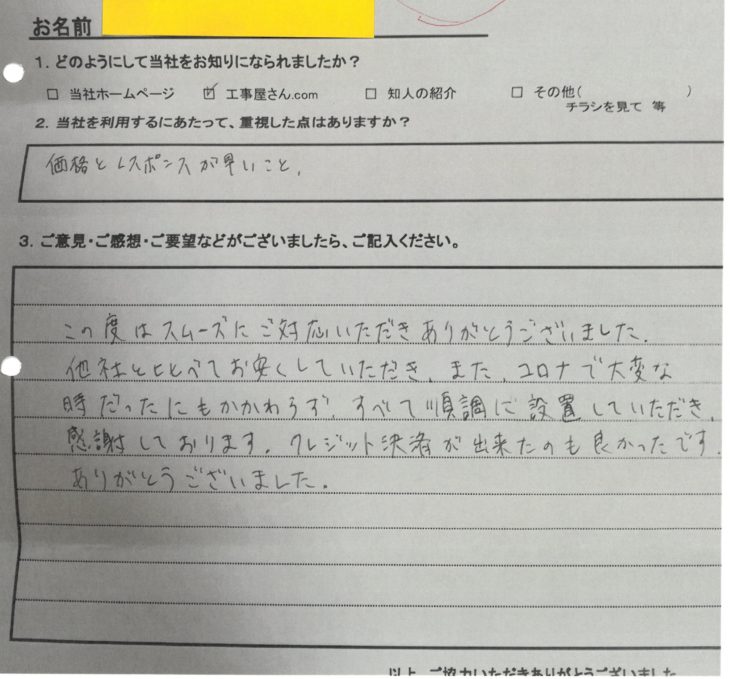 お名前
1. どのようにして当社をお知りになられましたか？
□ 当社ホームページ ☑ 工事屋さん.com □ 知人の紹介 □ その他( )
チラシを見て 等
2. 当社を利用するにあたって、重視した点はありますか？
価格とレスポンスが早いこと、
3. ご意見・ご感想・ご要望などがございましたら、ご記入ください。
この度はスムーズにご対応いただきありがとうございました。
他社とくらべてお安くしていただき、また、コロナで大変な
時だったにもかかわらず、すべて順調に設置していただき、
感謝しております。クレジット決済が出来たのも良かったです。
ありがとうございました。
以上、ご協力いただきありがとうございました